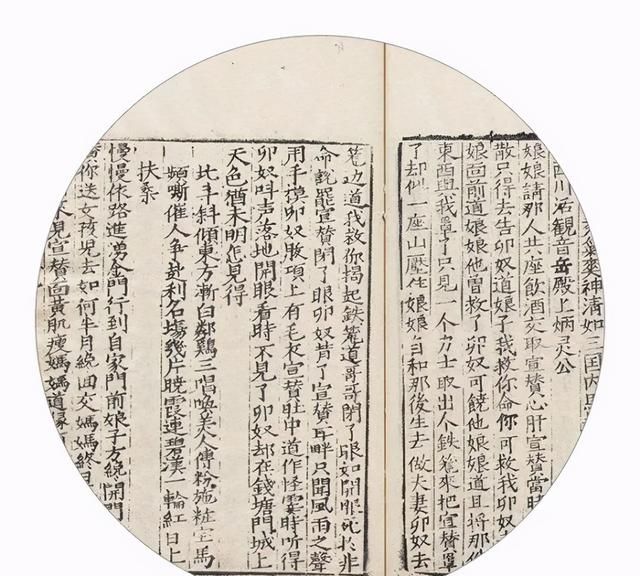 神清如三国内
西川活觀音岳殿上炳灵公
娘娘請那人共座飲酒交取宣贊心肝宣贊當時
散只得去告卯奴道娘子我救你命你可救我卯奴
娘面前道娘娘他曾救了卯奴可饒他娘娘道且將那
東西與我罩了只見一个力士取出个鉄籠來把宣贊罩
了却似一座山壓住娘娘自和那後生去做夫妻卯奴去
籠边道我救你揭起鉄籠道哥哥閉了眼如開眼死於非
命說罷宣贊閉了眼卯奴背了宣贊耳畔只聞風雨之聲
用手摸卯奴脖項上有毛衣宣贊肚中道作怪霎時听得
卯奴叫声落地開眼看時不見了卯奴却在錢塘門城上
天色猶未明怎見得
北斗斜傾東方漸白鄰鷄三唱喚美人傅粉施粧宝馬
頻嘶催人争赴利名塲幾片曉霞連碧漢一輪紅日上
扶桑
慢慢依路進湧金門行到自家門前娘子方纔開門
你送女孩兒去如何半月纔回交媽媽終日
不見宣贊面黃肌瘦媽媽道緣